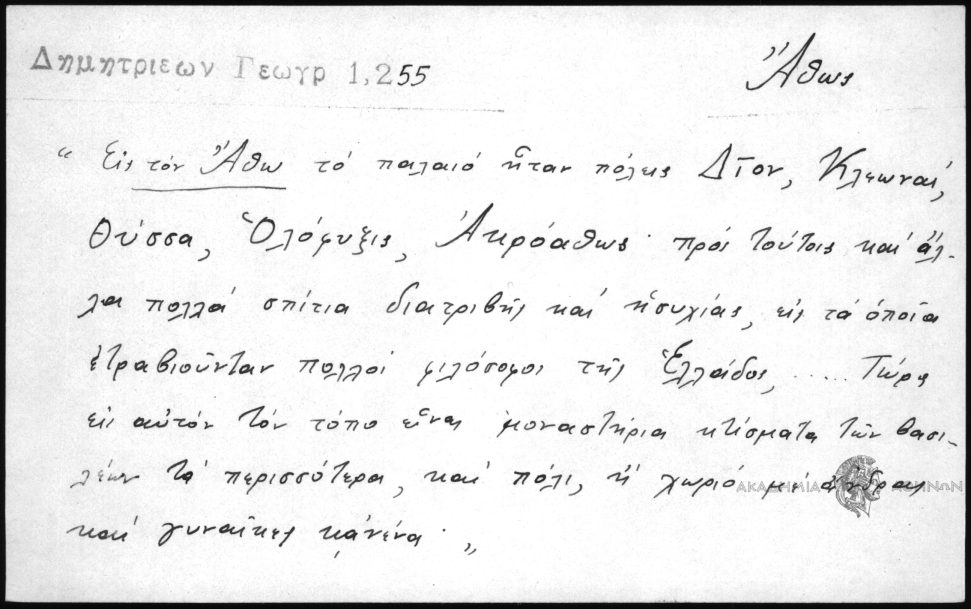 Δημητριεων Γεωγρ 1,255
Ἄθως
“ Εἰς τόν Ἄθω τό παλαιό ἦταν πόλεις Δῖον, Κλεωναί,
Θύσσα, Ὁλόφυξις, Ἀκρόαθως· πρός τούτοις καί ἄλ-
λα πολλά σπίτια διατριβῆς καί ἡσυχίας, εἰς τά ὁποῖα
ἐτραβιοῦνταν πολλοί φιλόσοφοι τῆς Ἑλλάδος, ..... Τώρα
εἰς αὐτόν τόν τόπο εἶναι μοναστήρια κτίσματα τῶν βασι-
λέων τά περισσότερα, καί πόλι, ἤ χωριό μέ ἄνδρας
καί γυναῖκες κᾀνένα „
ΑΚΑΔΗΜΙΑ ΑΘΗΝΩΝ